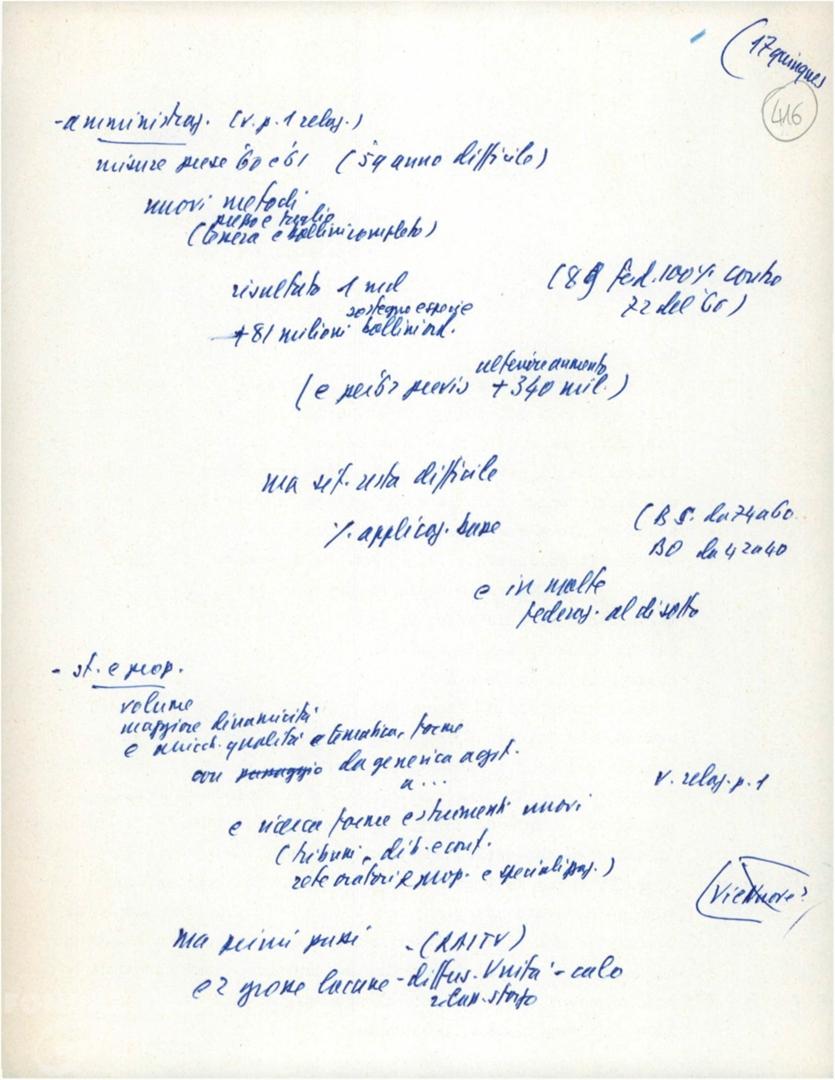 (17 quinques
416
- amministraz. (v. p. 1 relaz.)
misure prese '60 e '61 (59 anno difficile)
nuovi metodi
(tessera e bollini completo)
risultato 1 md (89 fed. 100% contro
72 del '60)
sostegno
+81 milioni bollini ord.
ulteriore aumento
(e per '62 previs +340 mil.)
ma sit. resta difficile
% applicaz. base (BS. da 74 a 60
BO da 42 a 40
e in molte
federaz. al disotto
- st. e prop.
volume
maggiore dinamicità
e arricch. qualità e tematica, forme
con passaggio da generica agit.
a...
v. relaz. p. 1
e ricerca forme e strumenti nuovi
(tribuni, dib. e conf.
rete oratori e prop. e specializzaz.)
(Vie Nuove?)
ma primi passi - (RAITV)
e 2 grosse lacune - diffus. Unità - calo